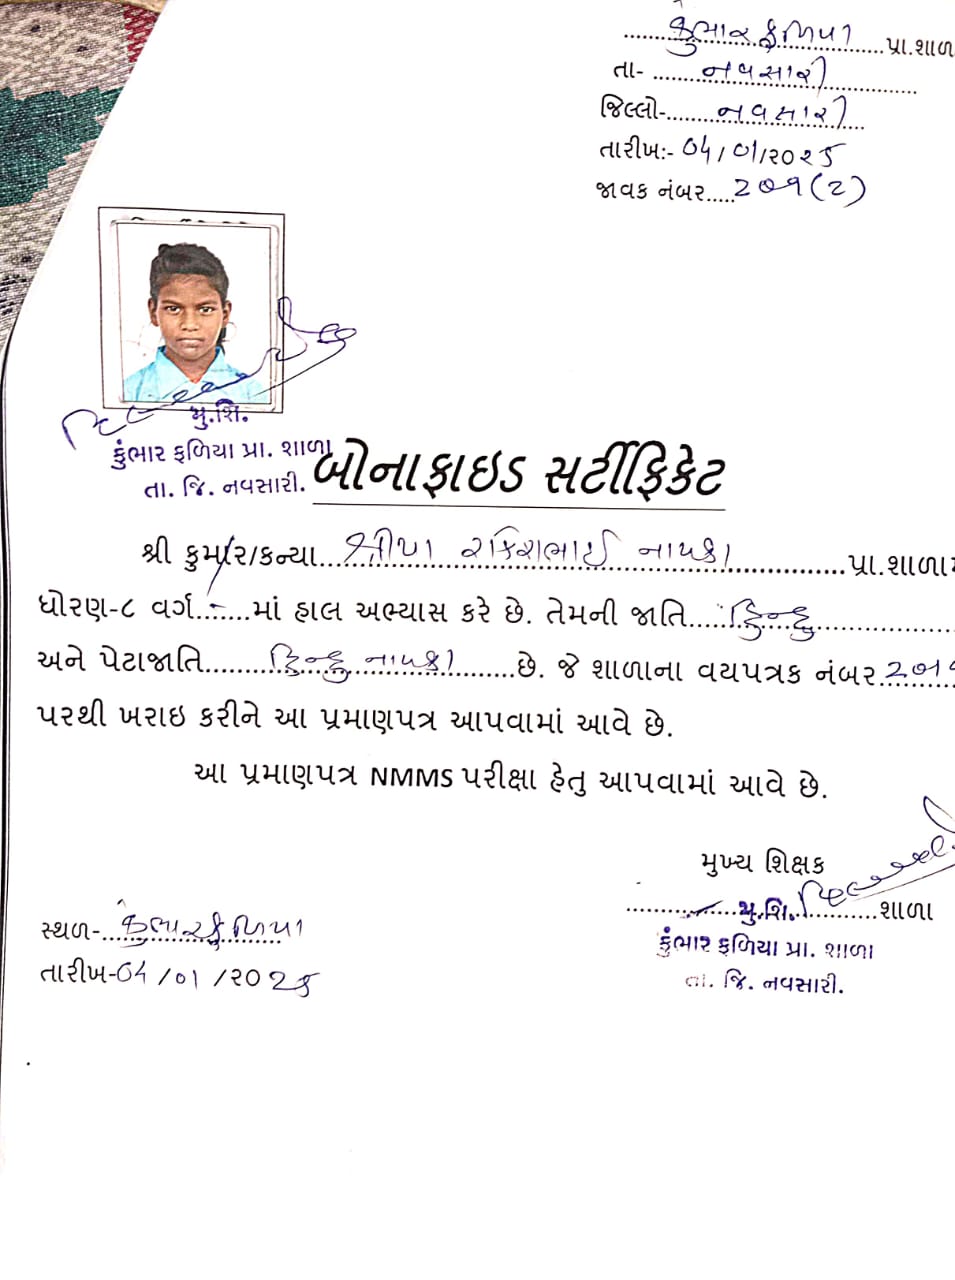 કુંભાર ફળિયા પ્રા.શાળ
તા- નવસારી
જિલ્લો- નવસારી
તારીખ:- 04/01/૨૦૨૬
જાવક નંબર 201(2)
મુ.શિ.
કુંભાર ફળિયા પ્રા. શાળા
તા. જિ. નવસારી.
બોનાફાઇડ સર્ટીફિકેટ
શ્રી કુમાર/કન્યા રાકેશભાઈ નાયકા પ્રા.શાળા
ધોરણ-૮ વર્ગ - માં હાલ અભ્યાસ કરે છે. તેમની જાતિ હિન્દુ
અને પેટાજાતિ હિન્દુ નાયકા છે. જે શાળાના વયપત્રક નંબર
પરથી ખરાઇ કરીને આ પ્રમાણપત્ર આપવામાં આવે છે.
આ પ્રમાણપત્ર NMMS પરીક્ષા હેતુ આપવામાં આવે છે.
મુખ્ય શિક્ષક
મુ.શિ. શાળા
કુંભાર ફળિયા પ્રા. શાળા
તા. જિ. નવસારી.
સ્થળ- કુંભાર ફળિયા
તારીખ-04/01/૨૦૨૬